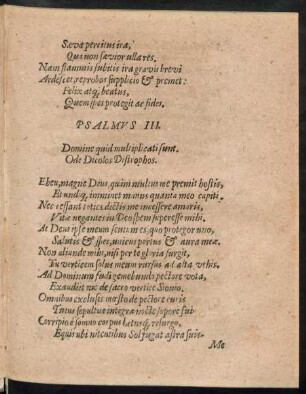 Sæva percitus ira,
Qua non sævior ulla res.
Nam flammis subitis ira gravis brevi
Ardescet, reprobos supplicio & premet:
Felix atq, beatus,
Quem spes protegit ac fides.
PSALMVS III.
Domine quid multiplicati sunt.
Ode Dicolos Distrophos.
Eheu, magne Deus, quàm multus me premit hostis,
Et undiq, imminet manus quanta meo capiti.
Nec cessant tetricis dictis me incessere amaris,
Vitæ negantes in Deo spem superesse mihi.
At Deus ipse meum scutum es, quo protegor uno,
Salutis & spes, unicus portus & aura meæ.
Non aliunde mihi, nisi per te gloria surgit,
Tu verticem solus meum rursus ad alta vehis.
Ad Dominum fudi gemebundo pectore vota,
Exaudiit me de sacro vertice Sionio.
Omnibus exclusis mæsto de pectore curis
Tutus sepultus integra nocte sopore fui.
Corripio è somno corpus lætusq, resurgo,
Equis ubi nitentibus Sol fugat astra suis.
Me